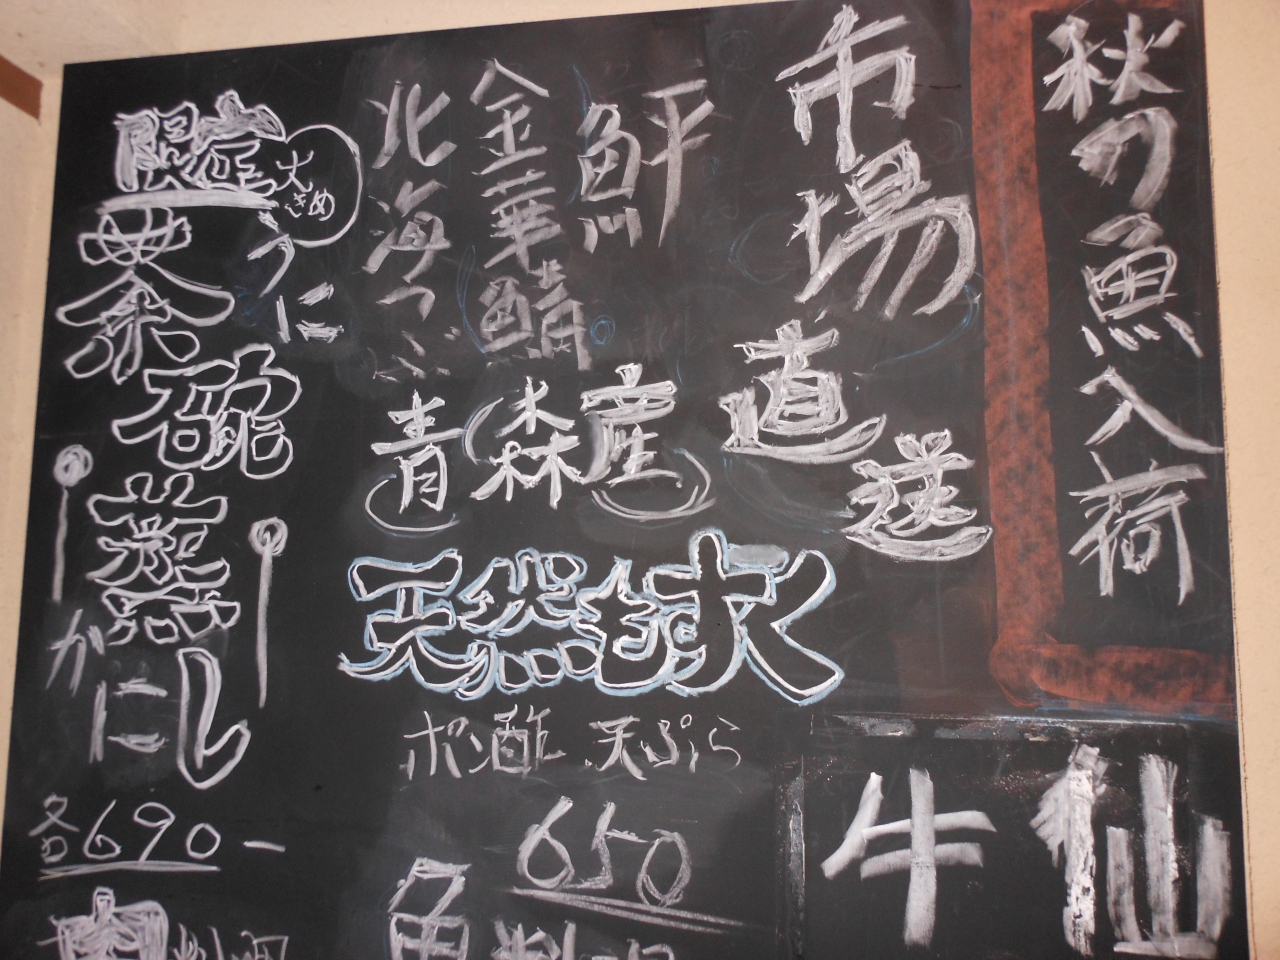 秋の魚入荷
市場直送
鮃
金華鯖
北海つぶ
青森産
天然もずく
ポン酢 天ぷら
650
限定
大きめ
茶碗蒸し
うに
かに
各690ー
仙
牛